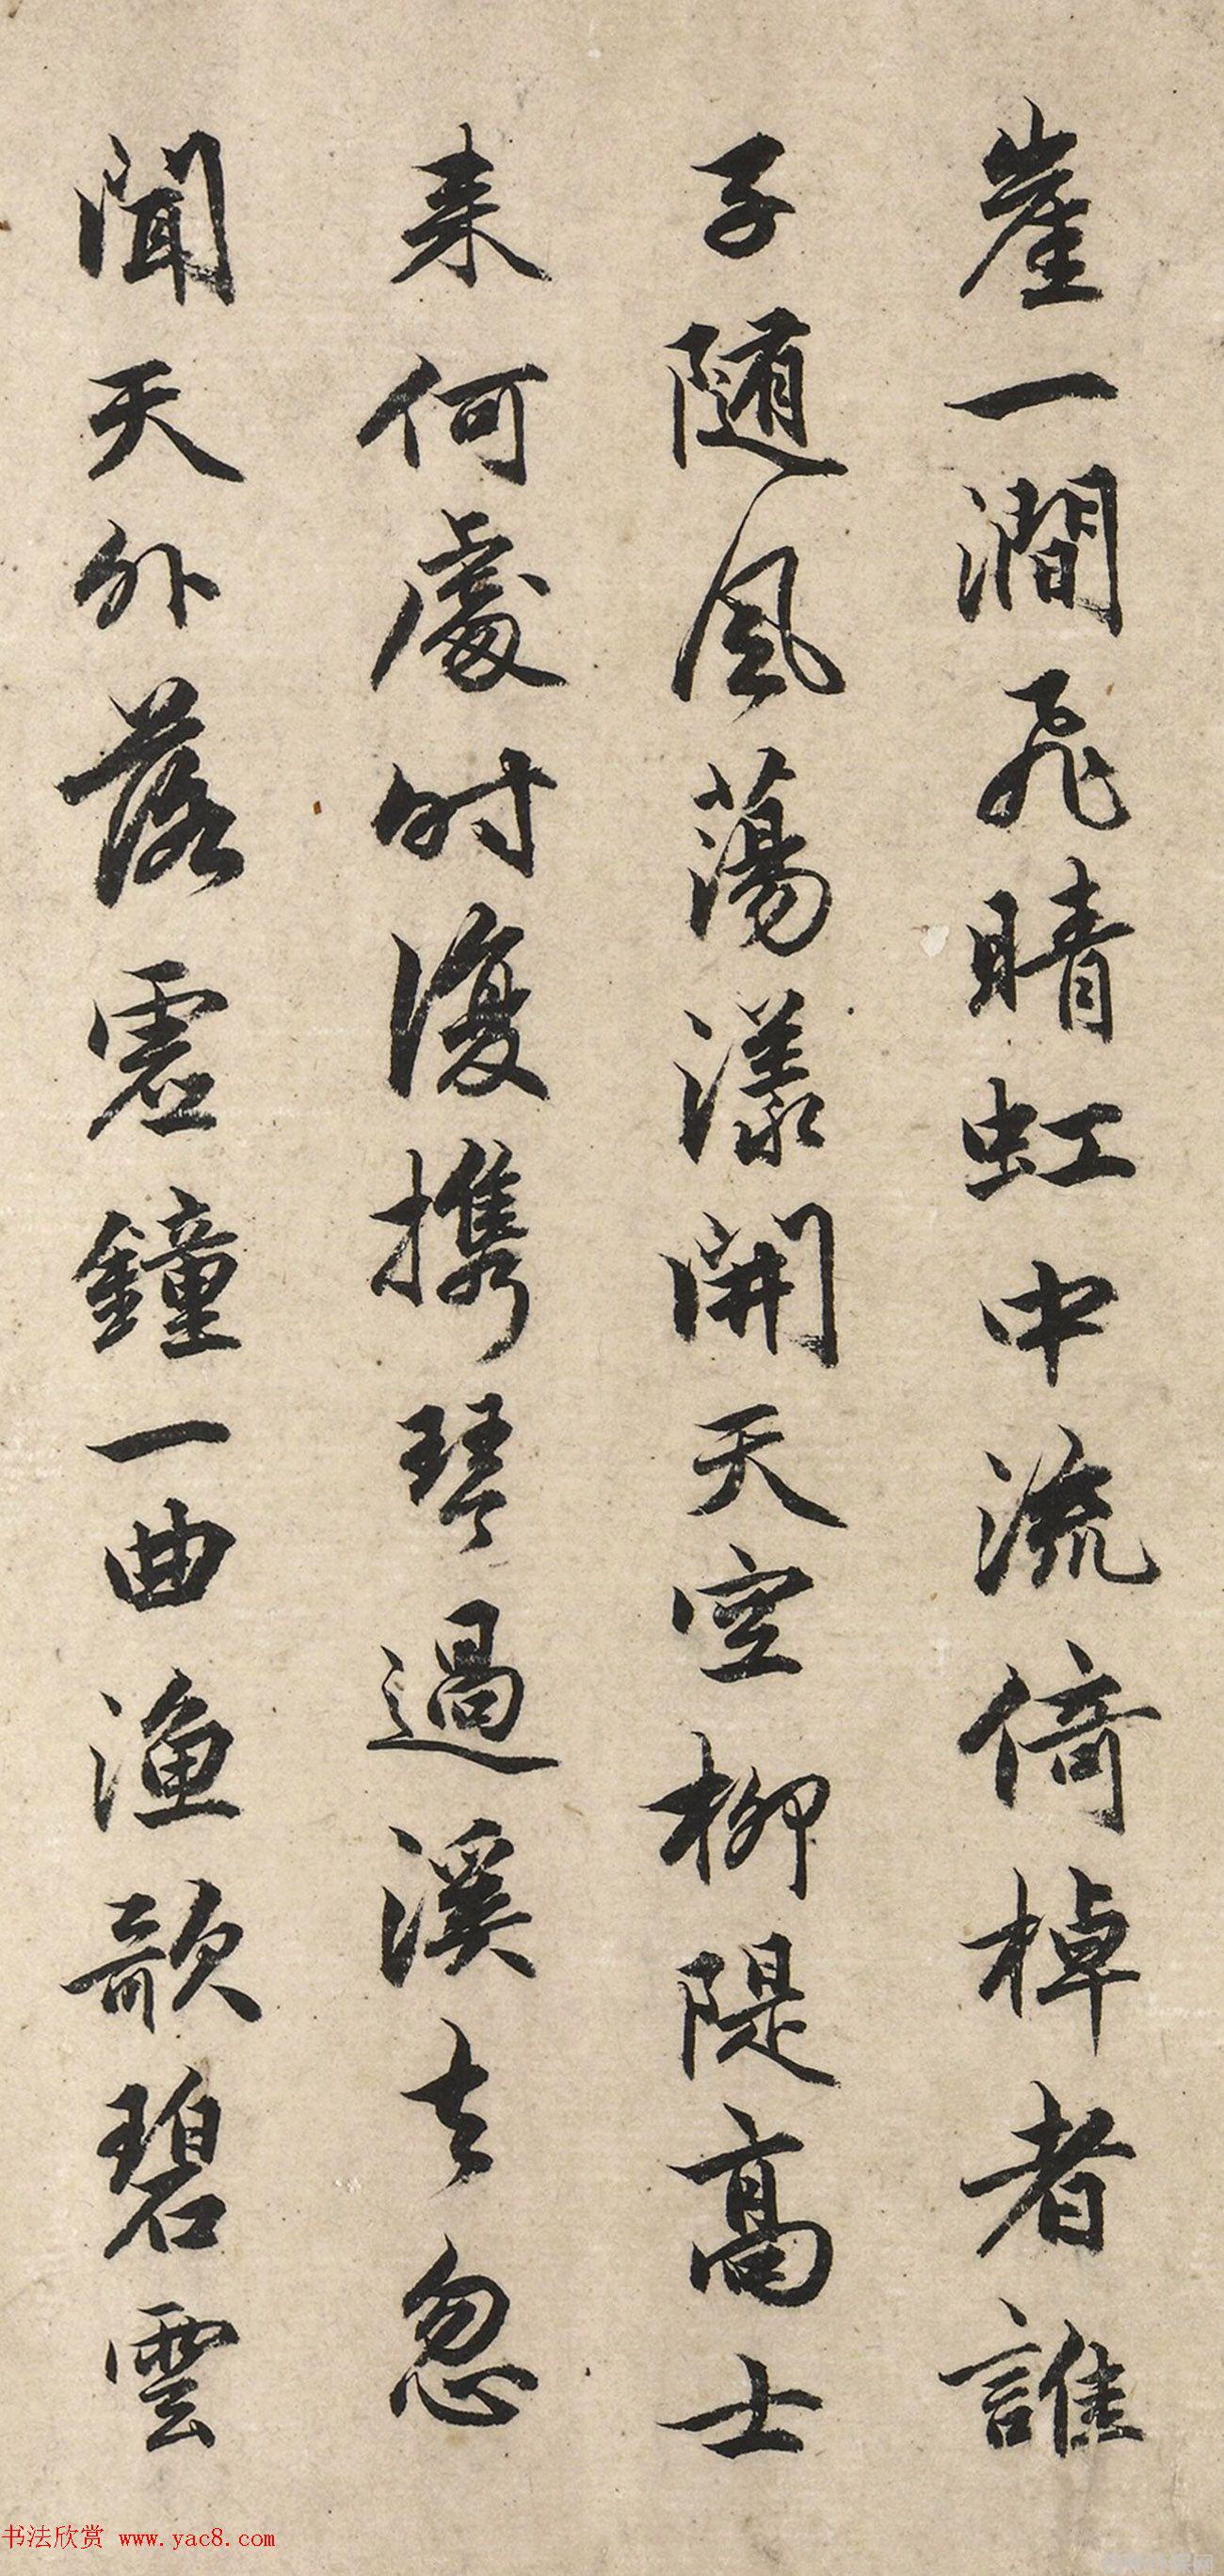 崖一澗飛晴虹中流倚棹者誰
子随風蕩漾開天空柳隄高士
来何處時復携琴過溪去忽
聞天外落雲鐘一曲漁歌碧雲
书法欣赏 www.yac8.com